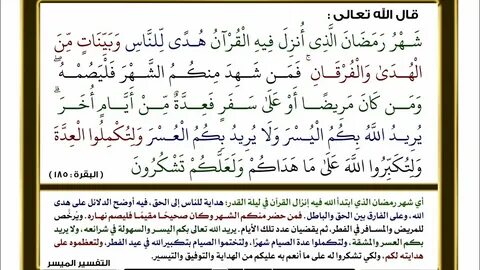 قال الله تعالى :
شَهْرُ رَمَضَانَ الَّذِي أُنزِلَ فِيهِ الْقُرْآنُ هُدًى لِّلنَّاسِ وَبَيِّنَاتٍ مِّنَ
الْهُدَىٰ وَالْفُرْقَانِ ۚ فَمَن شَهِدَ مِنكُمُ الشَّهْرَ فَلْيَصُمْهُ ۖ
وَمَن كَانَ مَرِيضًا أَوْ عَلَىٰ سَفَرٍ فَعِدَّةٌ مِّنْ أَيَّامٍ أُخَرَ ۗ
يُرِيدُ اللَّهُ بِكُمُ الْيُسْرَ وَلَا يُرِيدُ بِكُمُ الْعُسْرَ وَلِتُكْمِلُوا الْعِدَّةَ
وَلِتُكَبِّرُوا اللَّهَ عَلَىٰ مَا هَدَاكُمْ وَلَعَلَّكُمْ تَشْكُرُونَ
( البقرة : ١٨٥ )
أي شهر رمضان الذي ابتدأ الله فيه إنزال القرآن في ليلة القدر؛ هداية للناس إلى الحق، فيه أوضح الدلائل على هدى
الله ، وعلى الفارق بين الحق والباطل. فمن حضر منكم الشهر وكان صحيحًا مقيمًا فليصم نهاره. ويُرخَّص
للمريض والمسافر في الفطر، ثم يقضيان عدد تلك الأيام. يريد الله تعالى بكم اليسر والسهولة في شرائعه ، ولا يريد
بكم العسر والمشقة ، ولتكملوا عدة الصيام شهرًا، ولتختموا الصيام بتكبير الله في عيد الفطر، ولتعظموه على
هدايته لكم، ولكي تشكروا له على ما أنعم به عليكم من الهداية والتوفيق والتيسير.
التفسير الميسر